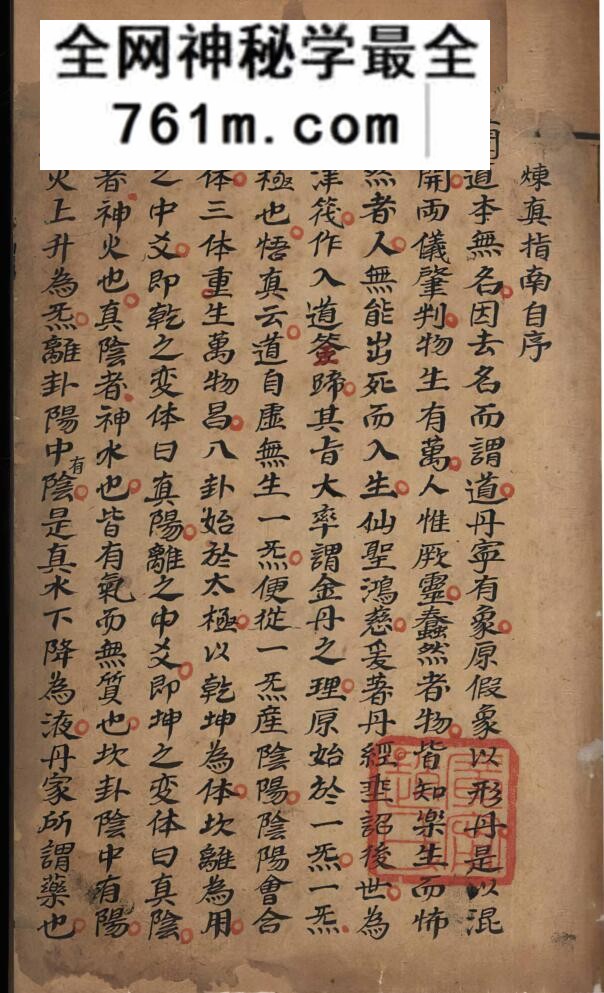 全网神秘学最全
761m.com
煉真指南自序
道本無名因去名而謂道丹寧有象原假象以形丹是以混
開兩儀肇判物生有萬人惟厥靈蠢然者物皆知樂生而怖
然者人無能出死而入生仙聖鴻慈爰著丹經垂詔後世為
津筏作入道筌蹄其旨大率謂金丹之理原始於一炁一炁
極也悟真云道自虛無生一炁便從一炁產陰陽陰陽會合
体三体重生萬物昌八卦始於太極以乾坤為体坎離為用
之中爻即乾之变体曰真陽離之中爻即坤之变体曰真陰
者神火也真陰者神水也皆有氣而無質也坎卦陰中有陽
火上升為炁離卦陽中有陰是真水下降為液丹家所謂藥也